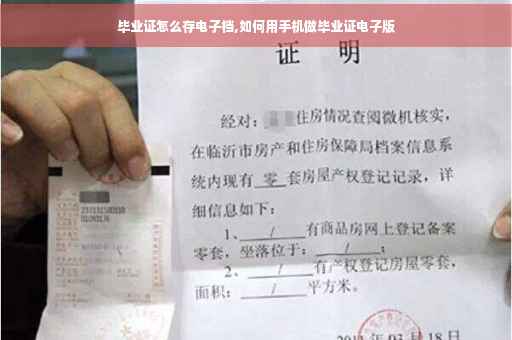 毕业证怎么存电子档,如何用手机做毕业证电子版
证 明
经对: 住房情况查阅微机核实,
在临沂市房产和住房保障局档案信息系
统内现有 零 套房屋产权登记记录, 详
细信息如下:
1、 / 有商品房网上登记备案
零套, 坐落位于: / ;
2、 / 有产权登记房屋零套,
面积: / 平方米。
03 月 18 日